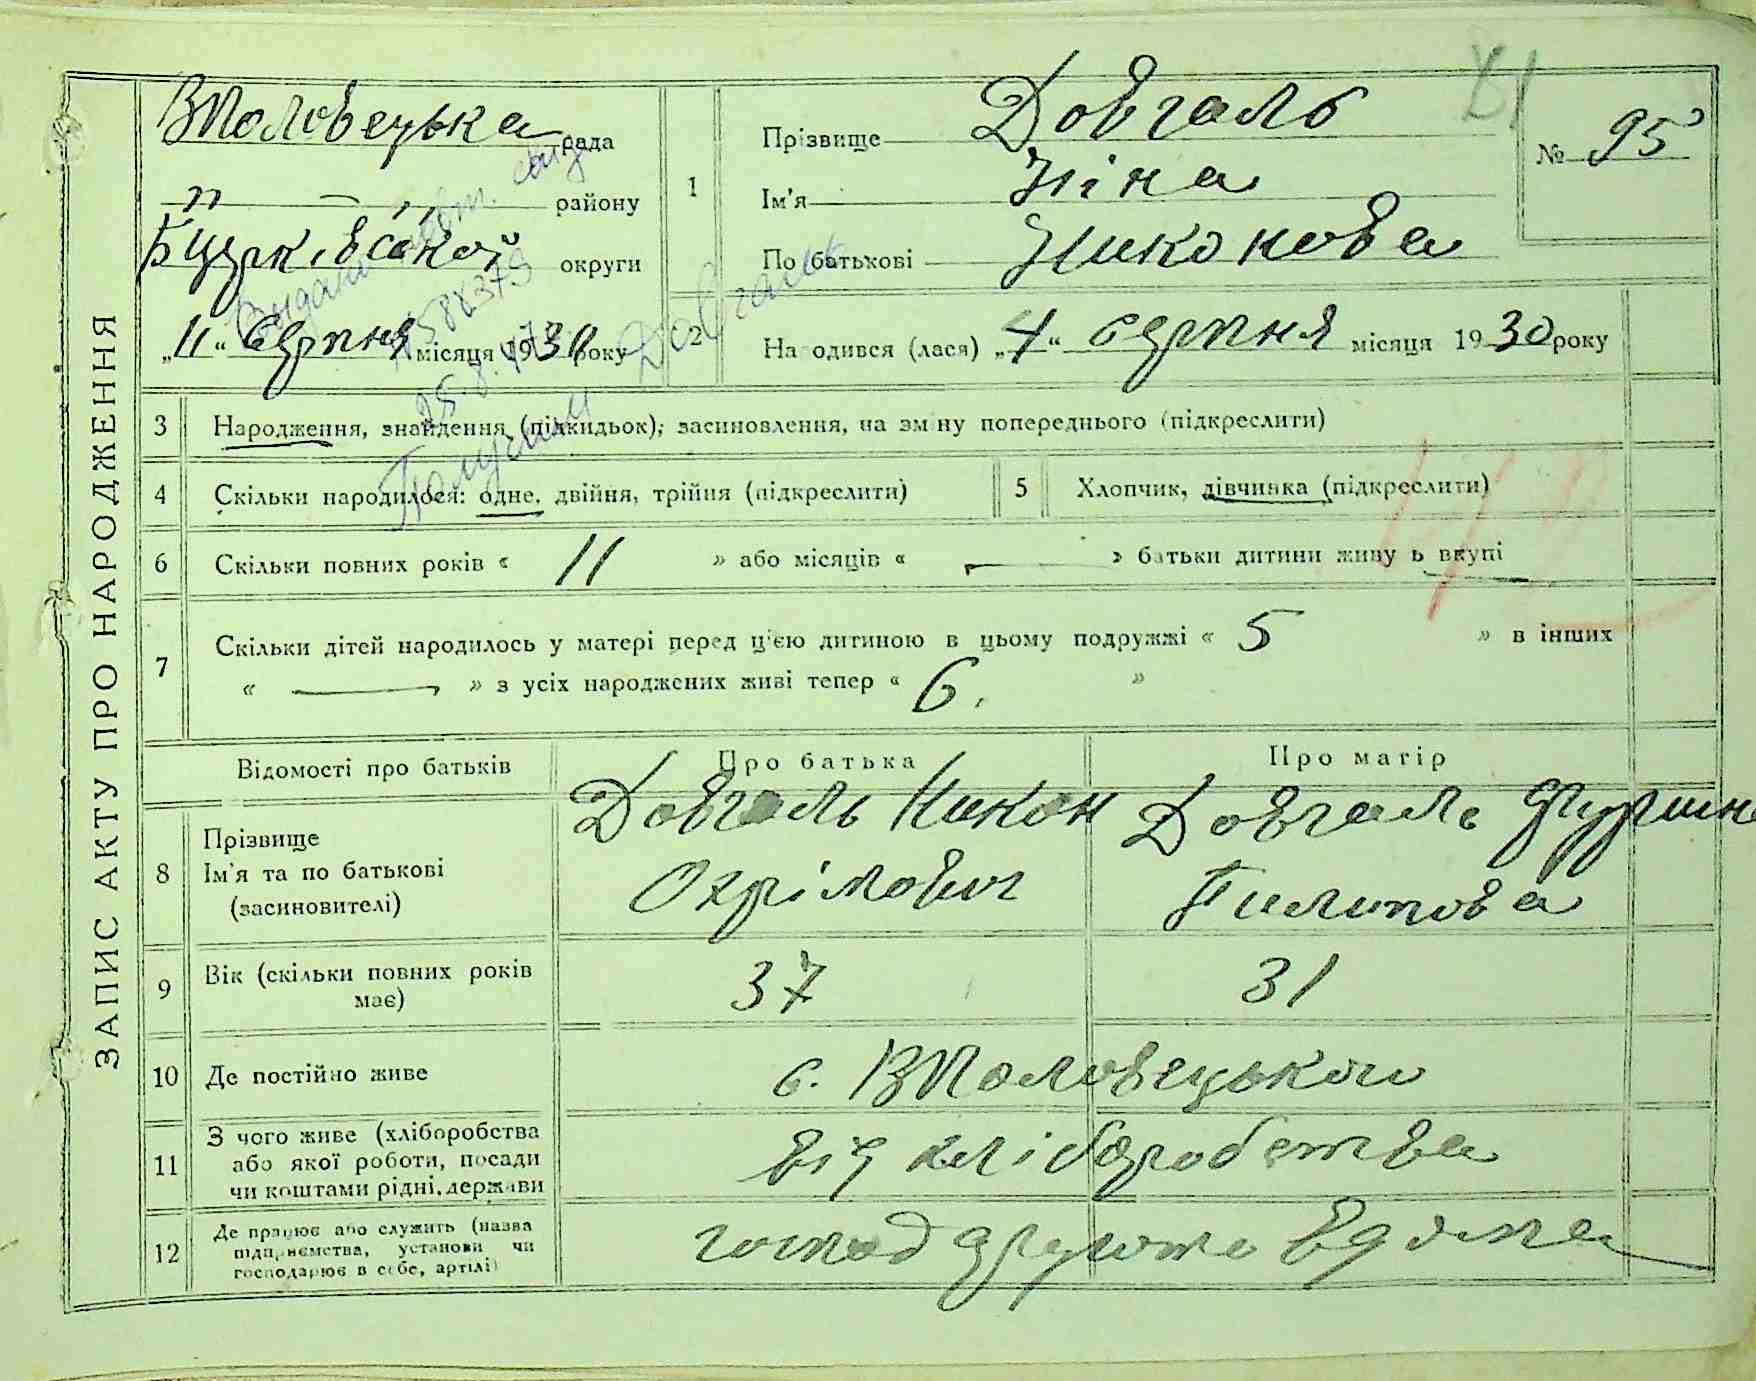 ЗАПИС АКТУ ПРО НАРОДЖЕННЯ
ВПоловецька рада
" — " — району
Бцерківської округи
„11“ серпня місяця 1930 року
1
Прізвище Довгаль
Ім'я Ніна
По батькові Никонова
№ 95
2 Народився (лася) „4“ серпня місяця 1930 року
Довгаль
3 Народження, знайдення (підкидьок), засиновлення, на зміну попереднього (підкреслити)
4 Скільки народилося: одне, двійня, трійня (підкреслити)
5 Хлопчик, дівчинка (підкреслити)
6 Скільки повних років « 11 » або місяців « — » батьки дитини живуть вкупі
7 Скільки дітей народилось у матері перед ц'єю дитиною в цьому подружжі « 5 » в інших
« — » з усіх народжених живі тепер « 6. »
Відомості про батьків Про батька Про матір
8 Прізвище
Ім'я та по батькові
(засиновителі)
Довгаль Никон
Охрімович
Довгаль
Пилипова
9 Вік (скільки повних років має) 37 31
10 Де постійно живе с. ВПоловецькому
11 З чого живе (хліборобства
або якої роботи, посади
чи коштами рідні, держави
від хліборобства
12 Де працює або служить (назва
підприємства, установи чи
господарює в себе, артілі)
вдома